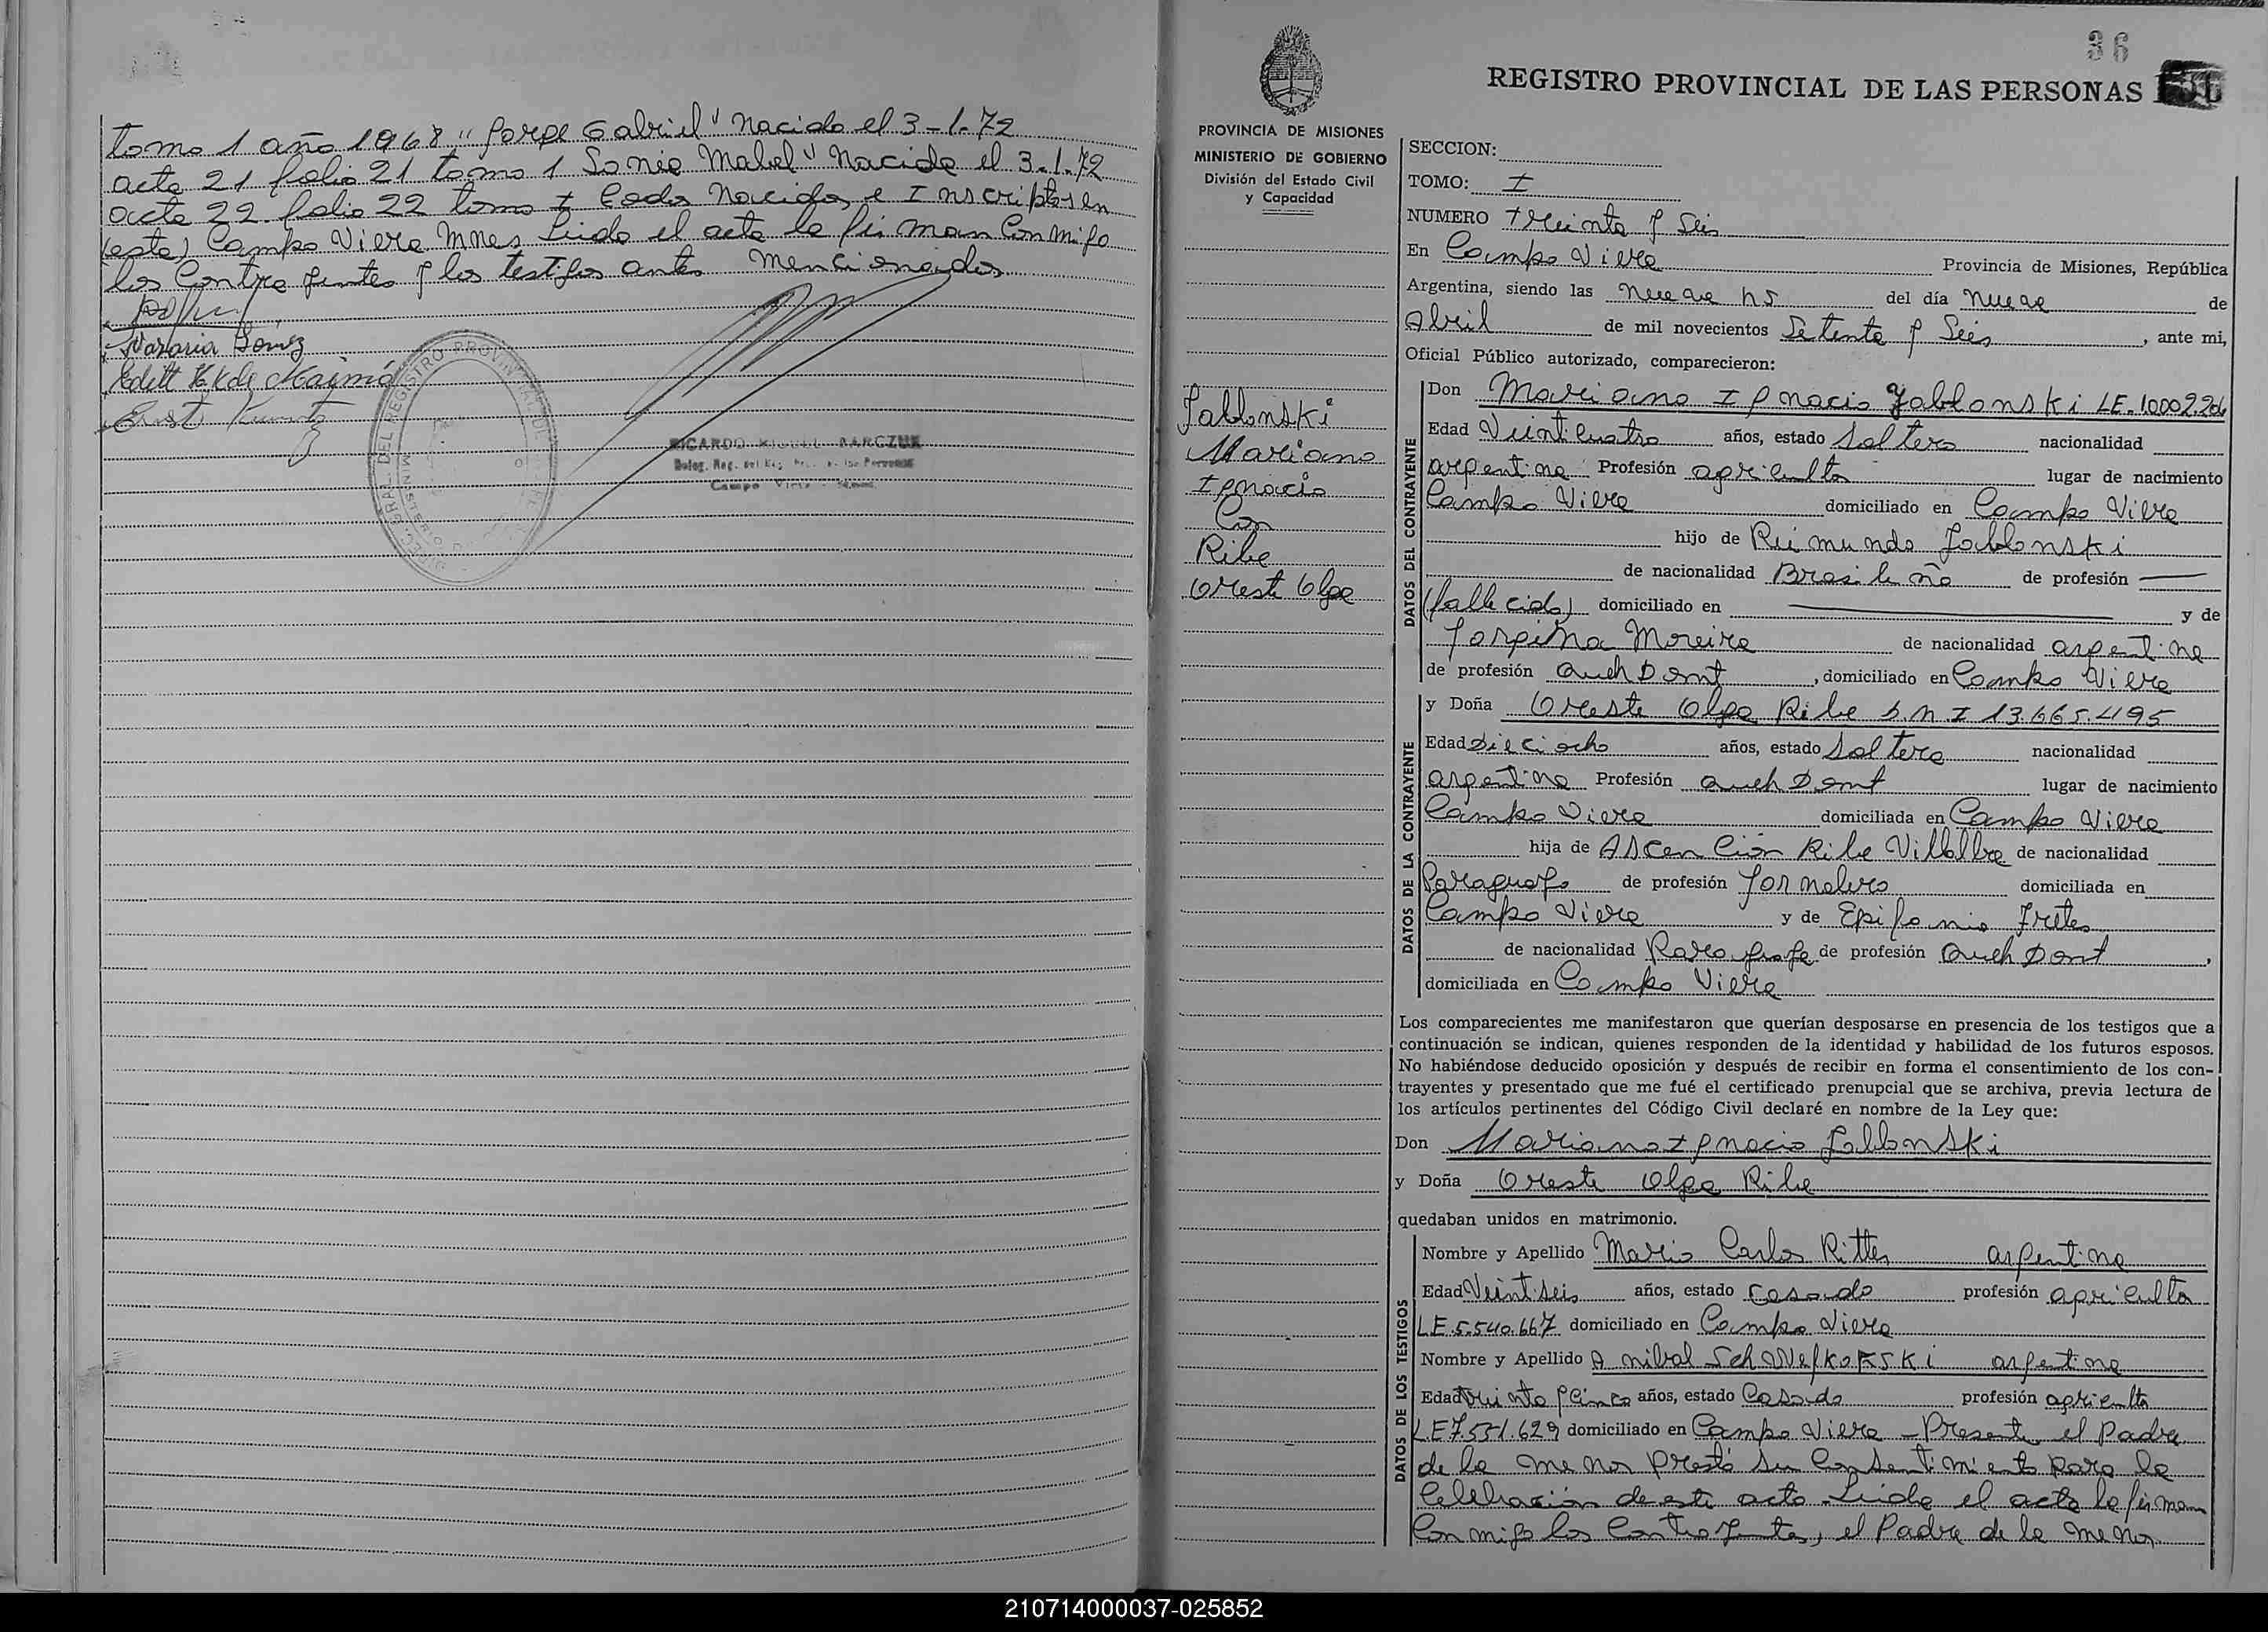 tomo 1 año 1968 "Jorge Gabriel" Nacido el 3-1-72
acta 21 folio 21 tomo 1 Sonia Mabel" Nacida el 3-1-72
acta 22 folio 22 tomo I todos Nacidos e Inscriptos en
(esta) Campo Viera Mnes Leida el acta la firman Conmigo
los Contrayentes y los testigos antes mencionados
Nazaria Gómez
Edith K K de
Ernst
DIREC. GRAL. DEL REGISTRO PROVINCIAL DE
MISIONES
RICARDO MIGUEL BARCZUK
Deleg. Reg. del Reg. Prov. de las Personas
Campo Viera - Mnes.
36
REGISTRO PROVINCIAL DE LAS PERSONAS
PROVINCIA DE MISIONES
MINISTERIO DE GOBIERNO
División del Estado Civil
y Capacidad
Jablonski
Mariano
Ignacio
Con
Ribe
Oreste Olga
SECCION:
TOMO: I
NUMERO treinta y Seis
En Campo Viera Provincia de Misiones, República
Argentina, siendo las nueve hs del día nueve de
Abril de mil novecientos Setenta y Seis, ante mi,
Oficial Público autorizado, comparecieron:
DATOS DEL CONTRAYENTE
Don Mariano Ignacio Jablonski LE. 10002.206
Edad Veinticuatro años, estado Soltero nacionalidad
argentina Profesión agriculto lugar de nacimiento
Campo Viera domiciliado en Campo Viera
hijo de Reimundo Jablonski
de nacionalidad Brasileño de profesión ——
(fallecido) domiciliado en —— y de
Moreira de nacionalidad argentina
de profesión Queh Domt, domiciliado en Campo Viera
DATOS DE LA CONTRAYENTE
y Doña Oreste Olga Ribe D.N.I 13.665.495
Edad Dieciocho años, estado Soltera nacionalidad
argentina Profesión Queh Domt lugar de nacimiento
Campo Viera domiciliada en Campo Viera
hija de Ascención Ribe Villalba de nacionalidad
Paraguayo de profesión Jornalero domiciliada en
Campo Viera y de Epifania Fretes
de nacionalidad Paraguaya de profesión Queh Domt,
domiciliada en Campo Viera
Los comparecientes me manifestaron que querían desposarse en presencia de los testigos que a
continuación se indican, quienes responden de la identidad y habilidad de los futuros esposos.
No habiéndose deducido oposición y después de recibir en forma el consentimiento de los con-
trayentes y presentado que me fué el certificado prenupcial que se archiva, previa lectura de
los artículos pertinentes del Código Civil declaré en nombre de la Ley que:
Don Mariano Ignacio Jablonski
y Doña Oreste Olga Ribe
quedaban unidos en matrimonio.
DATOS DE LOS TESTIGOS
Nombre y Apellido Mario Carlos Ritter argentino
Edad Veintiseis años, estado Casado profesión agriculto
LE.5.540.667 domiciliado en Campo Viera
Nombre y Apellido Anibal argentino
Edad treinta y Cinco años, estado Casado profesión agriculto
LE7.551.629 domiciliado en Campo Viera - Presente el Padre
de la menor Prestó su Consentimiento para la
Celebración de este acto. Leida el acta la firman
Conmigo los Contrayentes, el Padre de la menor
210714000037-025852